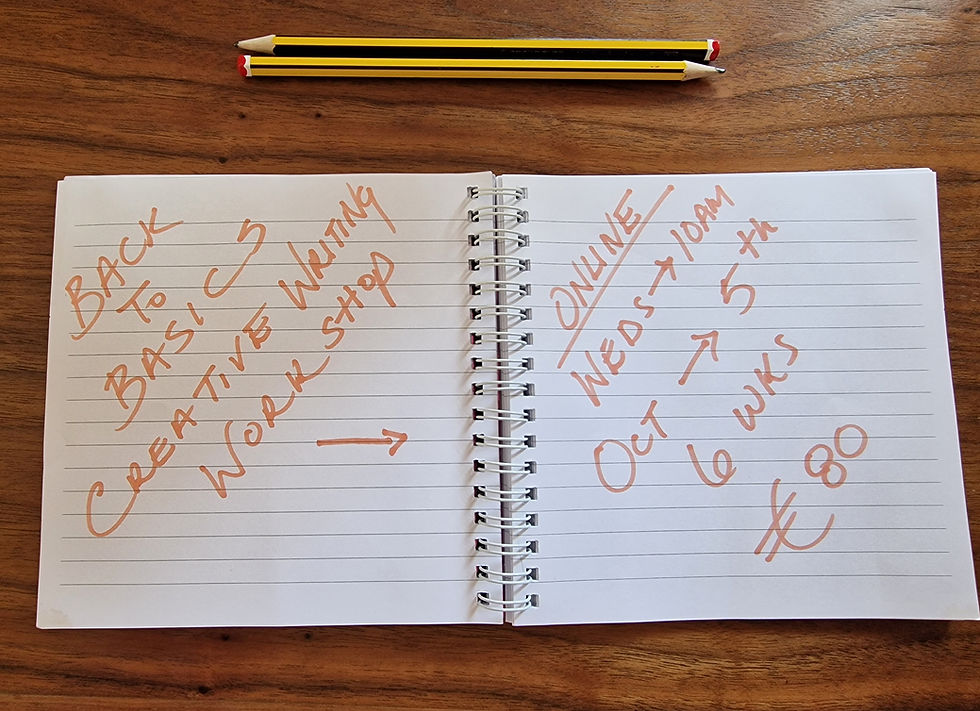 BACK
TO
BASICS
CREATIVE WRITING
WORK SHOP
→
ONLINE
WEDS → 10AM
OCT → 5th
6 WKS
€80